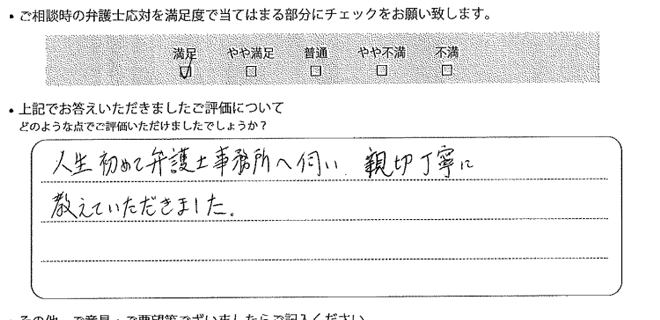 • ご相談時の弁護士応対を満足度で当てはまる部分にチェックをお願い致します。
満足 やや満足 普通 やや不満 不満
☑ □ □ □ □
• 上記でお答えいただきましたご評価について
どのような点でご評価いただけましたでしょうか?
人生初めて弁護士事務所へ伺い、親切丁寧に
教えていただきました。
• その他、ご意見・ご要望等ございましたらご記入ください